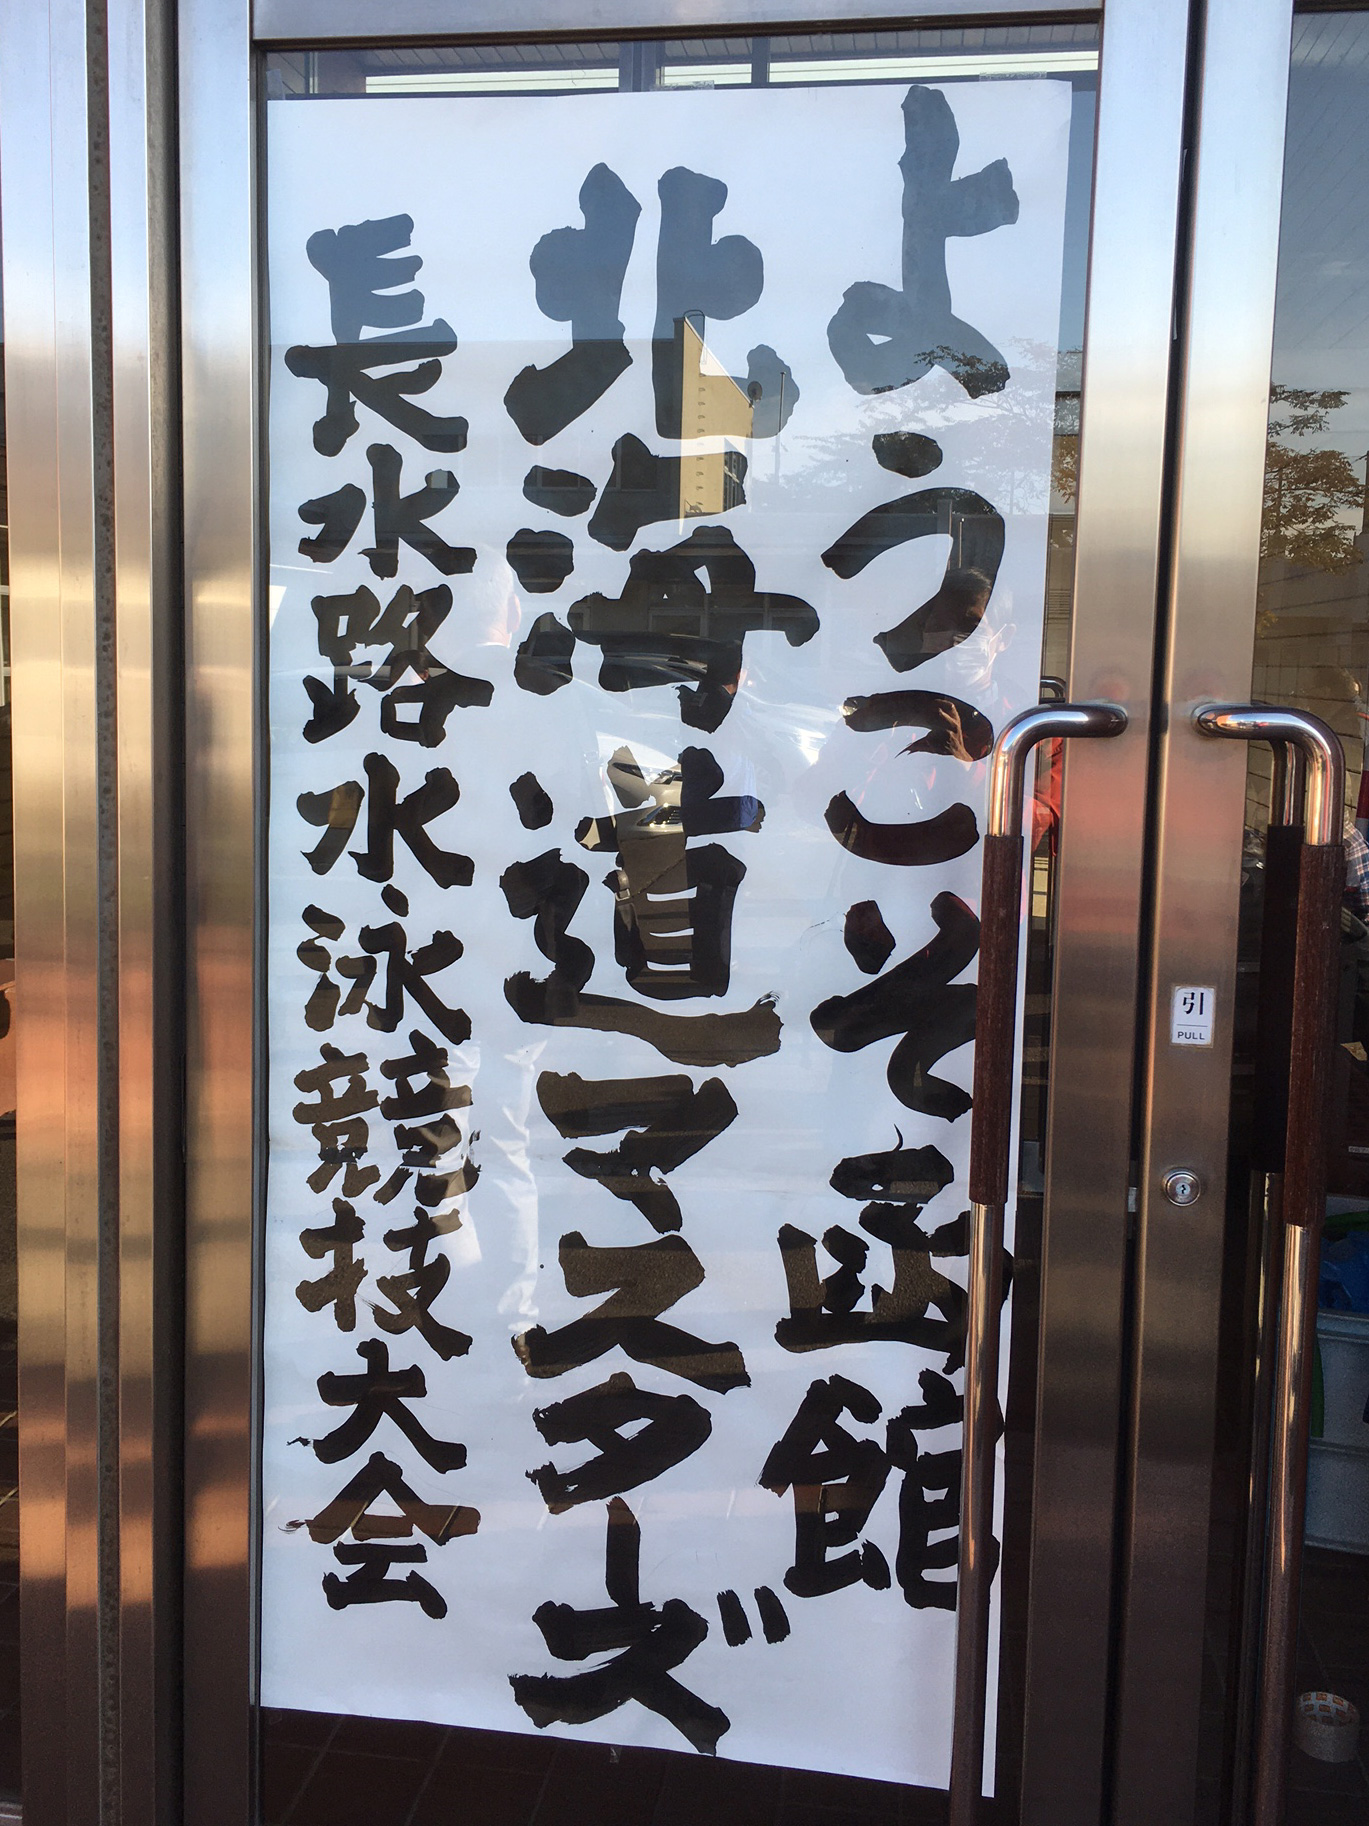 ようこそ函館
北海道マスターズ
長水路水泳競技大会
引
PULL